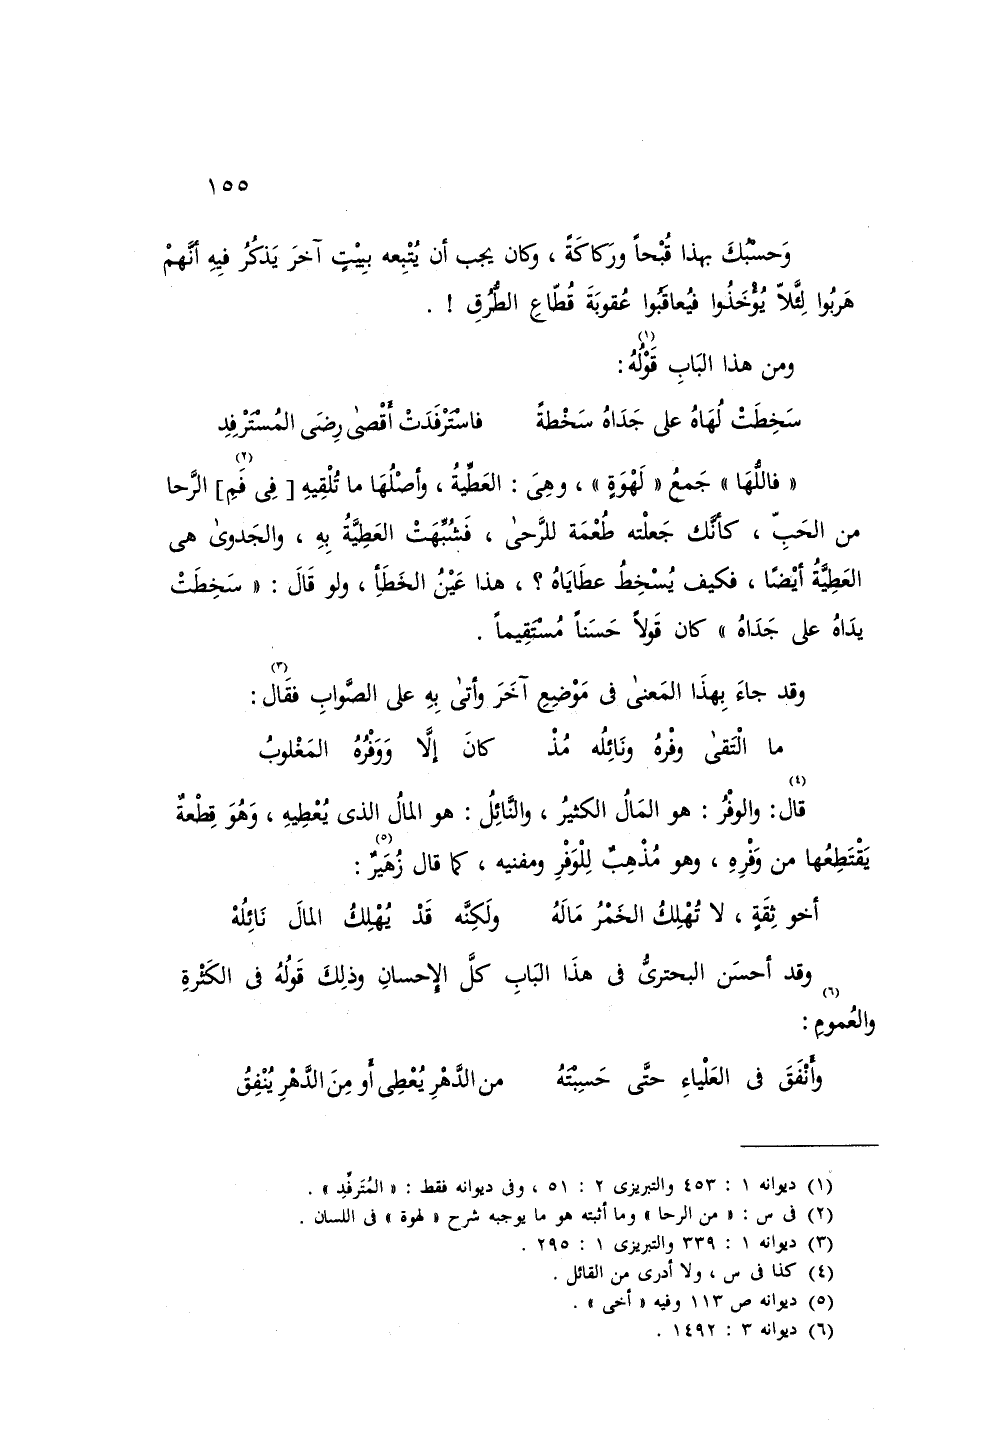 ١٥٥
وَحسْبُكَ بهذا قُبْحاً ورَكاكَةً ، وكان يجب أن يُتْبِعه ببِيْتٍ آخرَ يَذكُرُ فيِهِ أنَّهمْ
هَربُوا لِئَلاّ يُؤْخَذُوا فيُعاقَبُوا عُقوبَةَ قُطّاعِ الطُّرُقِ ! .
ومن هذا البَابِ قَوْلُهُ (١) :
سَخِطَتْ لُهَاهُ على جَدَاهُ سَخْطةً فاسْتَرْفَدَتْ أَقْصىٰ رِضَى المُسْتَرْفِدِ
« فاللُّهَا » جَمعُ « لَهْوَةٍ » ، وهِىَ : العَطِّيةُ ، وأصْلُهَا ما تُلْقِيهِ [ فِى فَمِ ] الرَّحا (٢)
من الحَبِّ ، كأنَّك جَعلْته طُعْمَة للرَّحىٰ ، فَشُبِّهَتْ العَطِيَّةُ بِهِ ، والجَدوىٰ هى
العَطِيَّةُ أيْضًا ، فكيف يُسْخِطُ عطايَاهُ ؟ ، هذا عَيْنُ الخَطَأِ ، ولو قَالَ : « سَخِطَتْ
يدَاهُ على جَدَاهُ » كان قَولاً حَسَناً مُسْتَقِيماً .
وقد جاءَ بِهذَا المَعنىٰ فى مَوْضِيعِ آخَرَ وأتىٰ بِهِ على الصَّوابِ فقَال (٣) :
ما الْتَقىٰ وفْرهُ ونَائِلُه مُذْ كانَ إلَّا وَوَفْرُهُ المَغْلوبُ
قال (٤) : والوفْرُ : هو المَالُ الكثيرُ ، والنَّائِلُ : هو المالُ الذى يُعْطِيهِ ، وَهُوَ قِطْعةٌ
يَقْتَطِعُها من وَفْرِهِ ، وهو مُذْهِبٌ لِلْوَفْرِ ومفنيه ، كما قال زُهَيْرٌ (٥) :
أخو ثِقَةٍ ، لا تُهْلِكُ الخَمْرُ مَالَهُ ولَكِنَّه قَدْ يُهْلِكُ المالَ نَائِلُهْ
وقد أحسَن البحترىُّ فى هذَا البَابِ كلَّ الإِحسانِ وذلِكَ قَولُهُ فى الكَثْرةِ
والعُمومِ (٦) :
وأَنْفَقَ فى العَلْياءِ حتَّى حَسِبْتَهُ من الدَّهْرِ يُعْطِى أَو مِنَ الدَّهْرِ يُنْفِقُ
(١) ديوانه ١ : ٤٥٣ والتبريزى ٢ : ٥١ ، وفى ديوانه فقط : « المُتَرفِّدِ » .
(٢) فى س : « من الرحا » وما أثبته هو ما يوجبه شرح « لهوة » فى اللسان .
(٣) ديوانه ١ : ٣٣٩ والتبريزى ١ : ٢٩٥ .
(٤) كذا فى س ، ولا أدرى من القائل .
(٥) ديوانه ص ١١٣ وفيه « أخى » .
(٦) ديوانه ٣ : ١٤٩٢ .